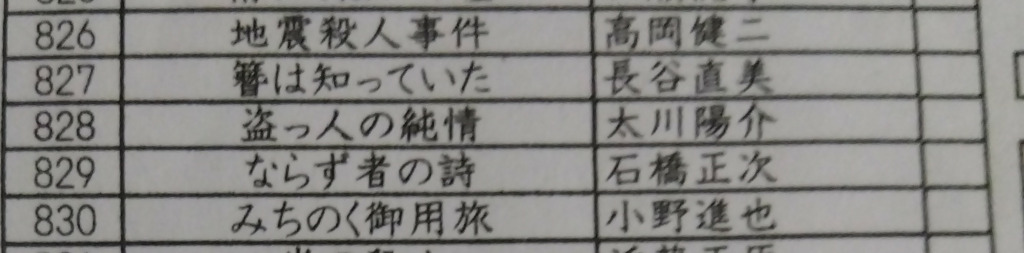 826 地震殺人事件 高岡健二
827 簪は知っていた 長谷直美
828 盗っ人の純情 太川陽介
829 ならず者の詩 石橋正次
830 みちのく御用旅 小野進也